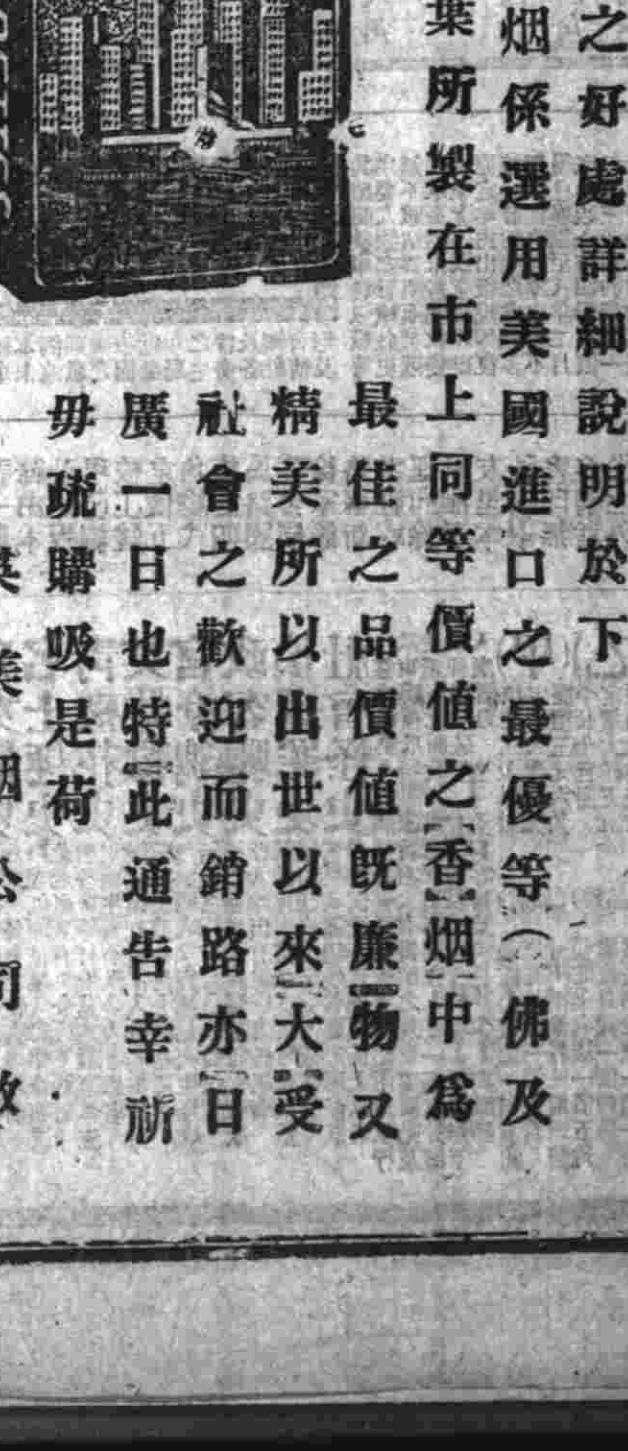 之好處詳細說明於下
烟係選用美國進口之最優等（佛及
葉所製在市上同等價值之香烟中爲
最佳之品價值既廉物又
精美所以出世以來大受
社會之歡迎而銷路亦日
廣一日也特此通告幸祈
毋疏購吸是荷
英美烟公司啟